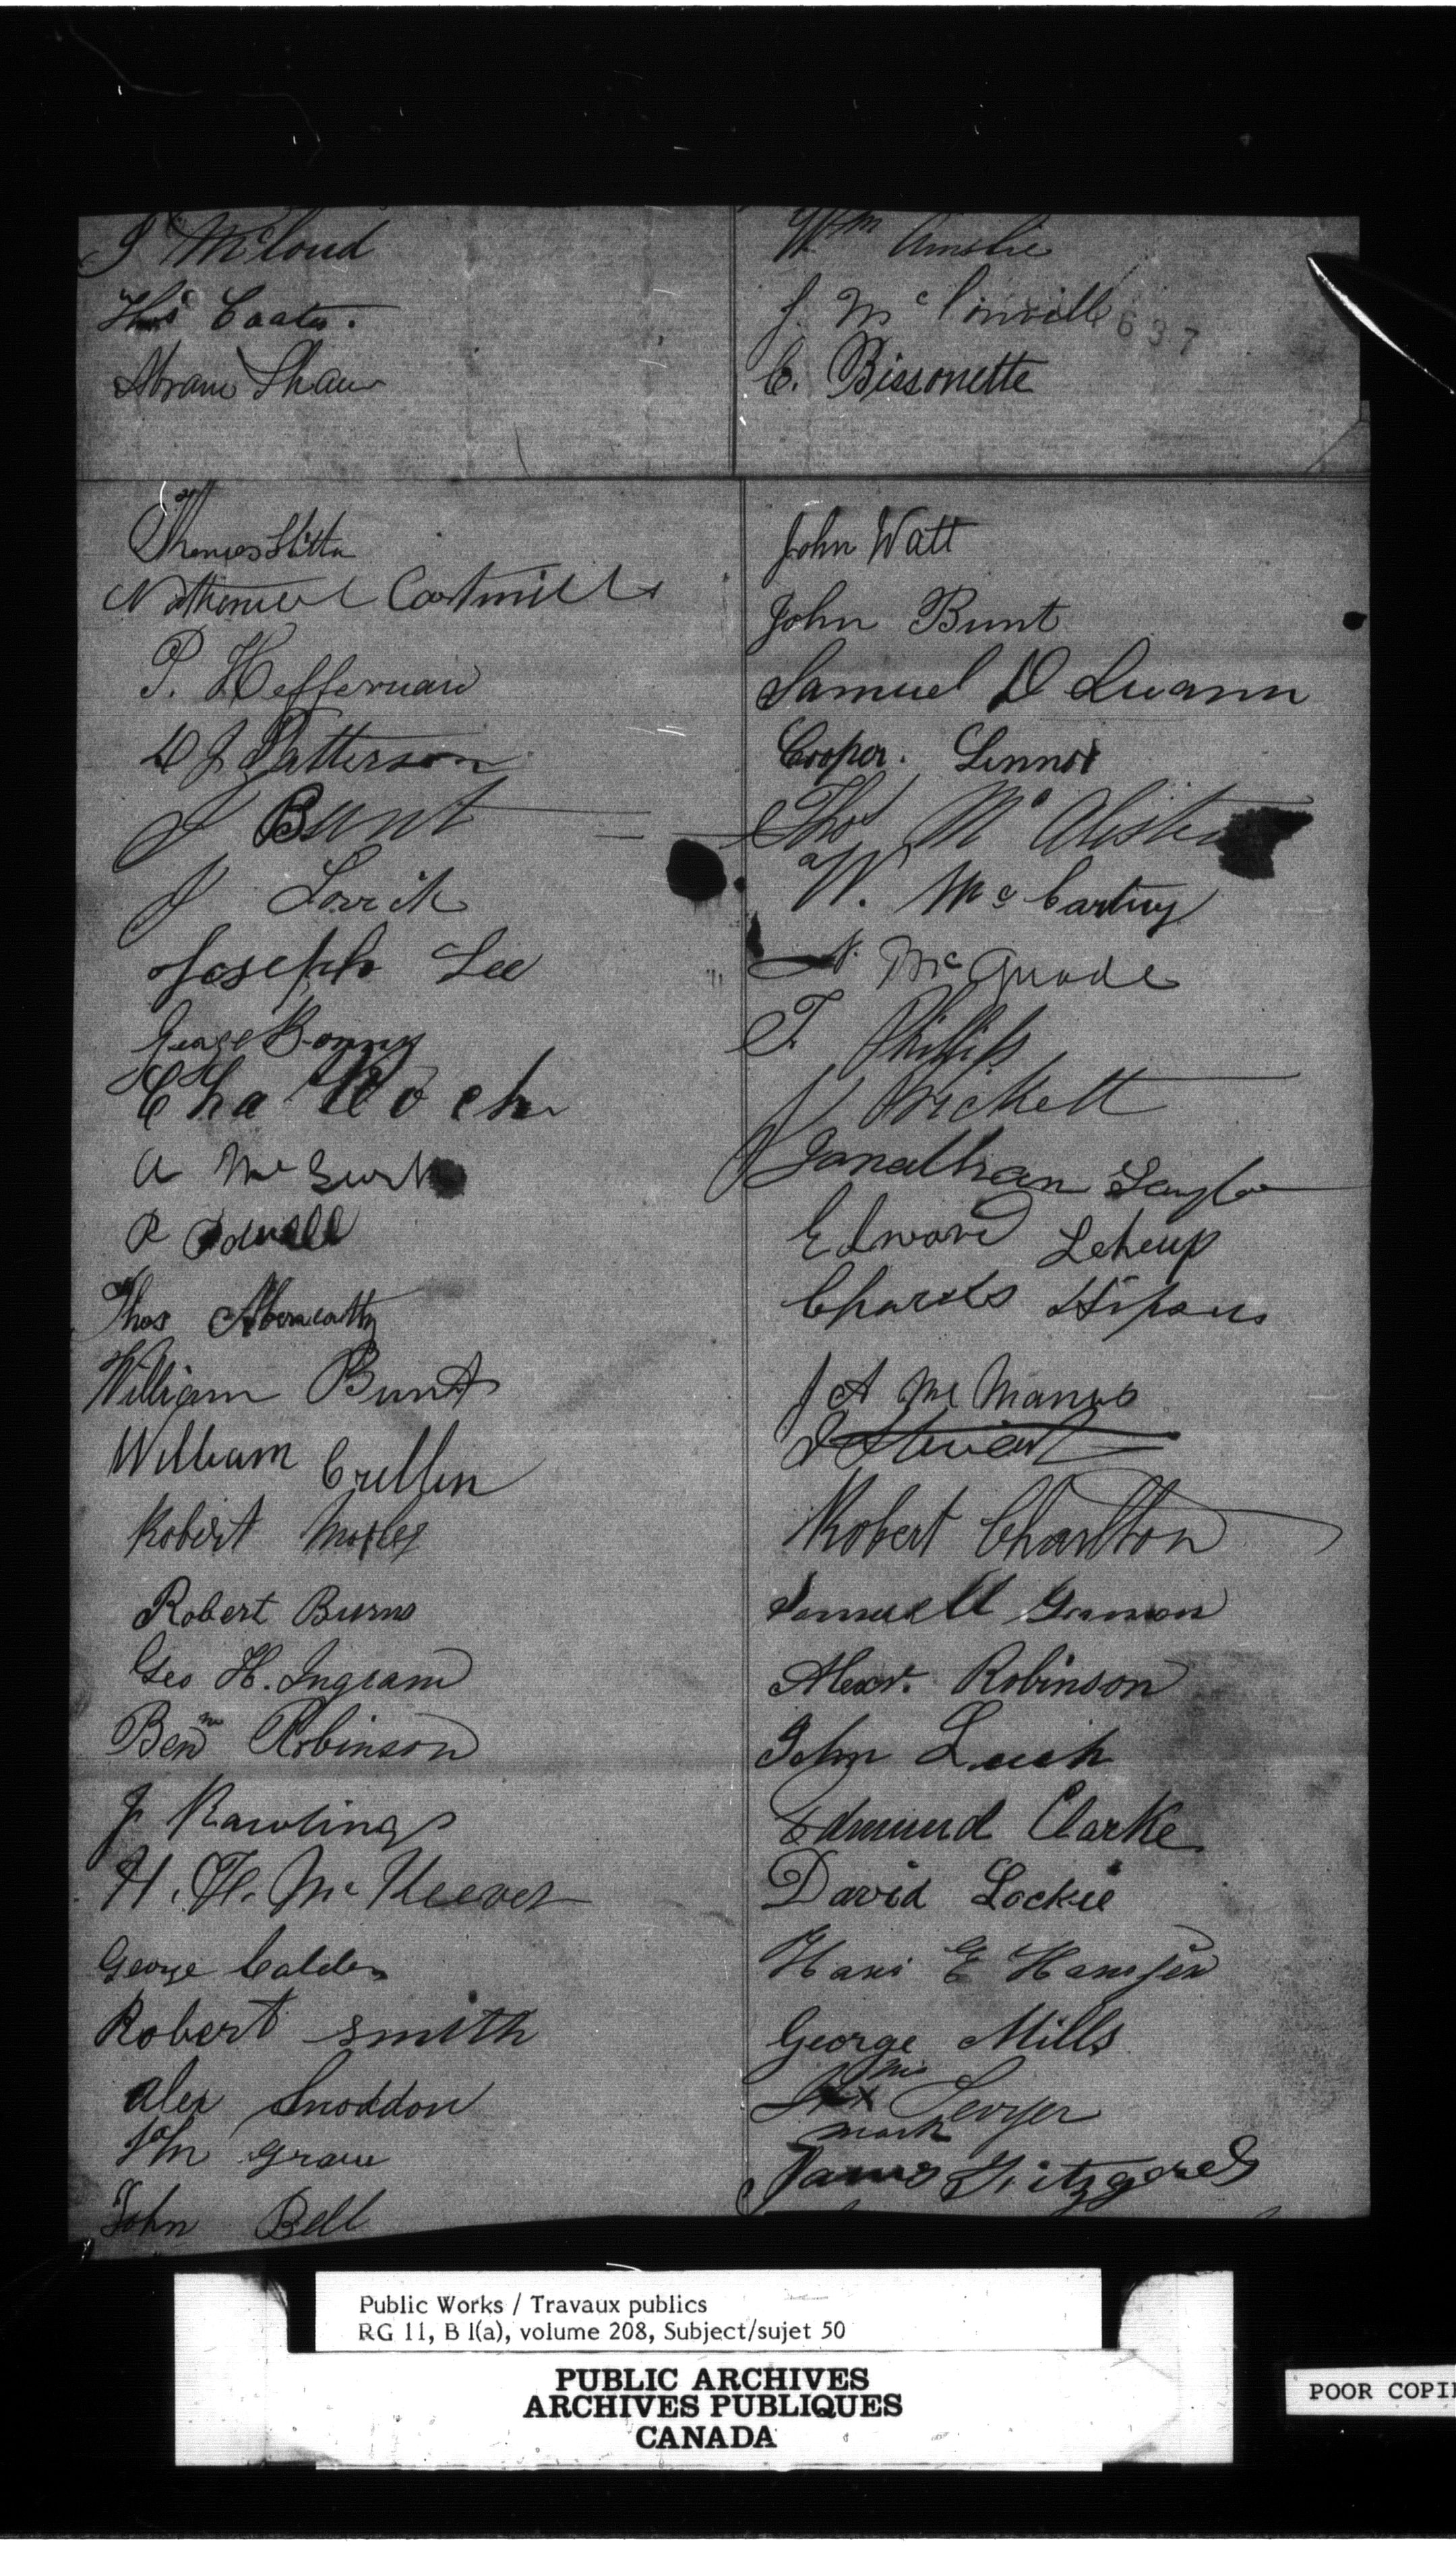 J McCloud
Thos Coates.
Abram Shaw
Wm Ainslie
J. McConvill
637
C. Bissonette
Thomas
Nathaniel Cartmill
P. Heffernan
D J Patterson
J Bunt
J
Joseph Lee
George Bonny
Cha Koch
A Mc Gurk
P
Thos Abernathy
William Bunt
William Crellin
Robert
Robert Burns
Geo H. Ingram
Benmn Robinson
J Rawlings
H. H. Mc Keever
George Calder
Robert Smith
Alex Snoddon
John Bell
John Watt
John Bunt
Samuel D Luann
Cooper. Lennox
Thos Mc Alister
W. Mc Cartny
Mc Quade
T. Phillips
J Prickett
Jonathan Taylor
Edward Leheup
Charles
J A Mc Manus
J Stewart
Robert Charlton
Samuell
Alexr. Robinson
John
Edmund Clarke
David Lockie
Hans E Hansen
George Mills
his
x
mark
James Fitzgareld
Public Works / Travaux publics
RG 11, B 1(a), volume 208, Subject/sujet 50
PUBLIC ARCHIVES
ARCHIVES PUBLIQUES
CANADA
POOR COPI